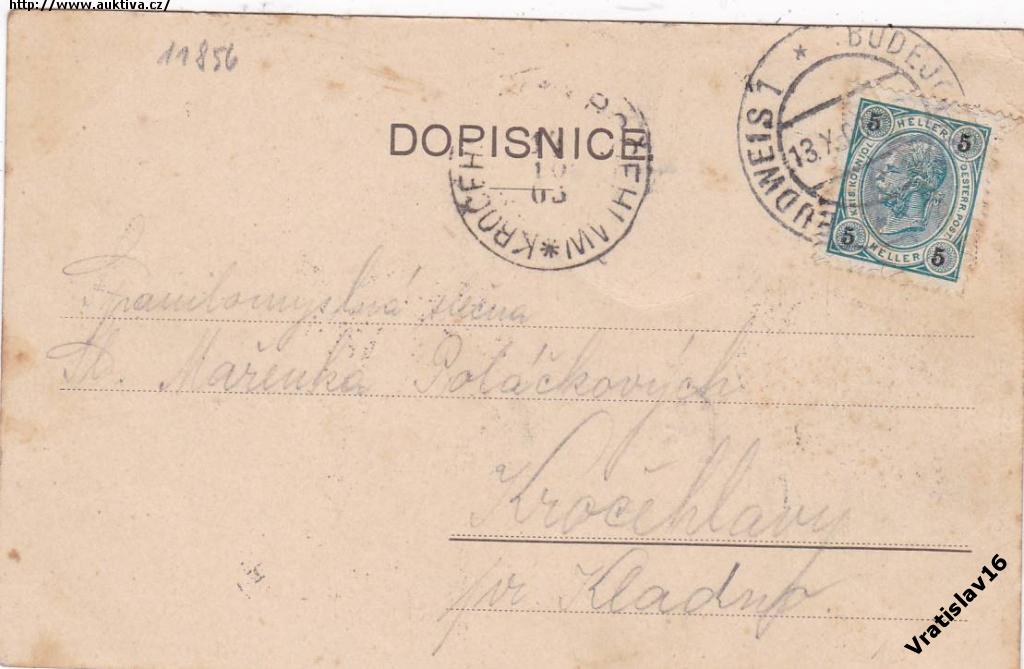 http://www.auktiva.cz/
11856
DOPISNICE
KROČEH
KROČEHLAW
10
03
BUDWEIS 1
BUDĚJO
13.X.0
5 HELLER 5
KAIS. KÖNIGL.
OESTERR. POST.
5 HELLER 5
slečna
Mařenka Poláčkových
Kročehlavy
pr. Kladno.
Vratislav16